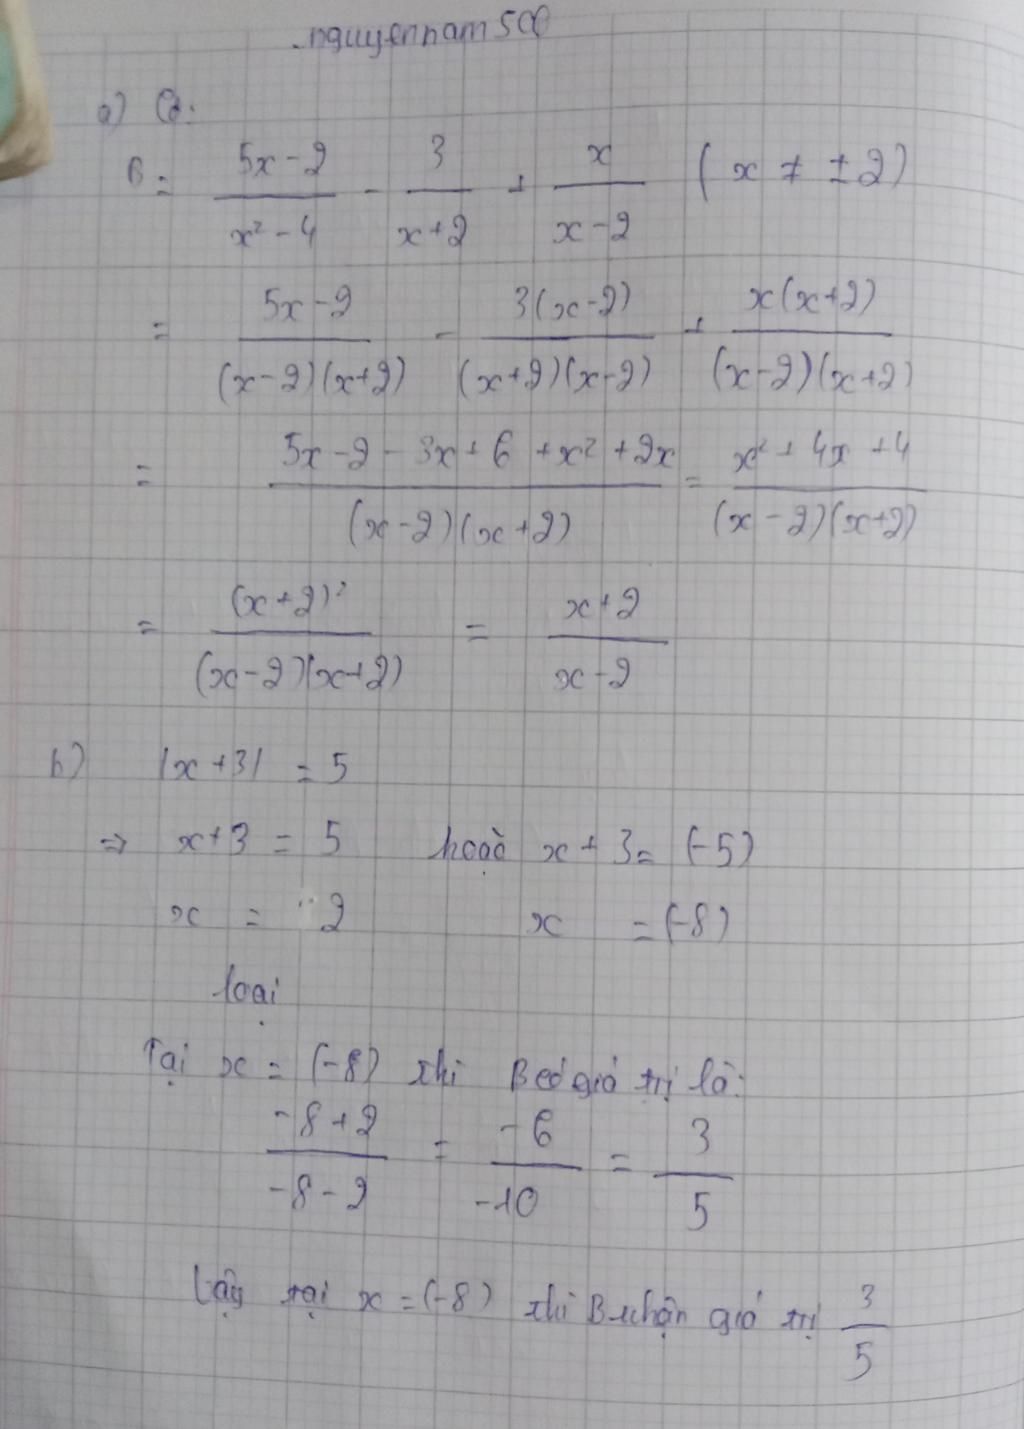 nguyennam500
a) Có:
B = (5x - 2)/(x² - 4) - 3/(x+2) + x/(x - 2) (x ≠ ±2)
= (5x - 2)/((x - 2)(x+2)) - 3(x-2)/((x+2)(x-2)) + x(x+2)/((x-2)(x+2))
= (5x - 2 - 3x + 6 + x² + 2x)/((x-2)(x+2)) = (x² + 4x + 4)/((x-2)(x+2))
= (x+2)²/((x-2)(x+2)) = (x+2)/(x-2)
b) |x+3| = 5
⇒ x+3 = 5 hoặc x + 3 = (-5)
x = 2 x = (-8)
loại
Tại x = (-8) thì B có giá trị là:
(-8+2)/(-8-2) = -6/-10 = 3/5
Vậy tại x = (-8) thì B nhận giá trị 3/5